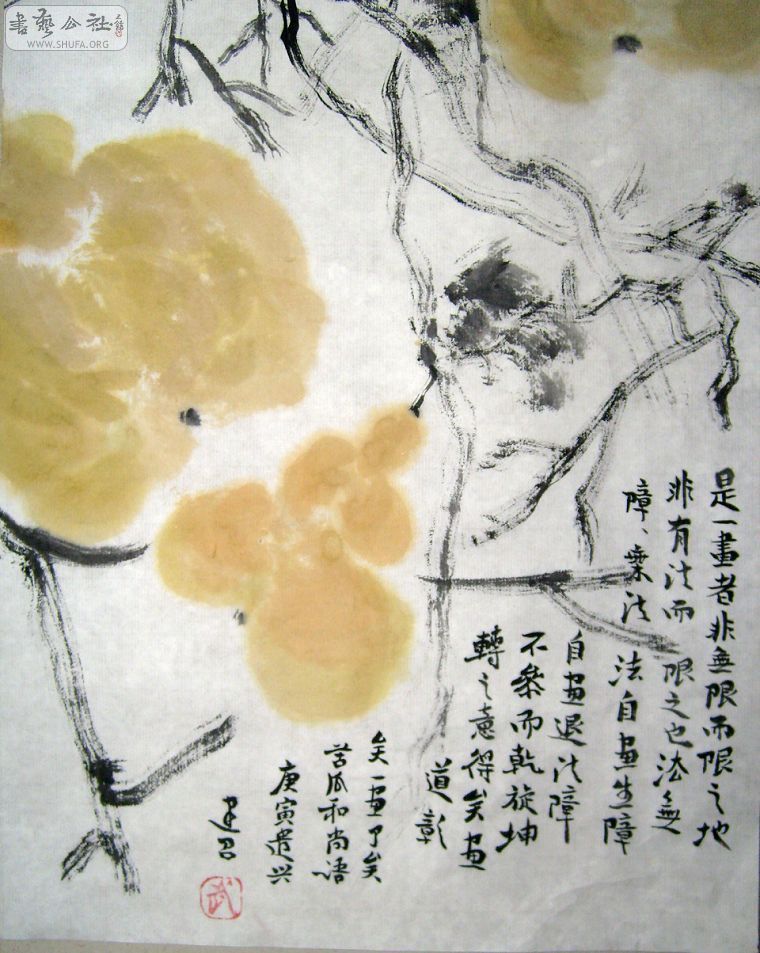 書藝公社
WWW.SHUFA.ORG
是一畫者非無限而限之地
非有法而限之也法無
障、法法自画生障
自画退法障
不參而乾旋坤
轉之意得矣画
道彰
矣一画了矣
苦瓜和尚语
庚寅遣兴
武